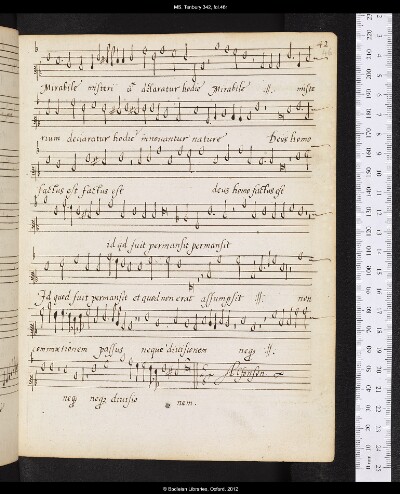 MS. Tenbury 342, fol.46r
42
Mirabile misteri ũ declaratur hodie Mirabile :||: miste
rium decuratur hodie innovantur nature Deus homo
factus est factus est deus homo factus est
id qd fuit permansit permansit
Id quod fuit permansit et quod non erat assumpsit :||: non
commixtionem passus neque divisionem neqз :||:
neqз neqз divisio nem.
© Bodleian Libraries, Oxford, 2012